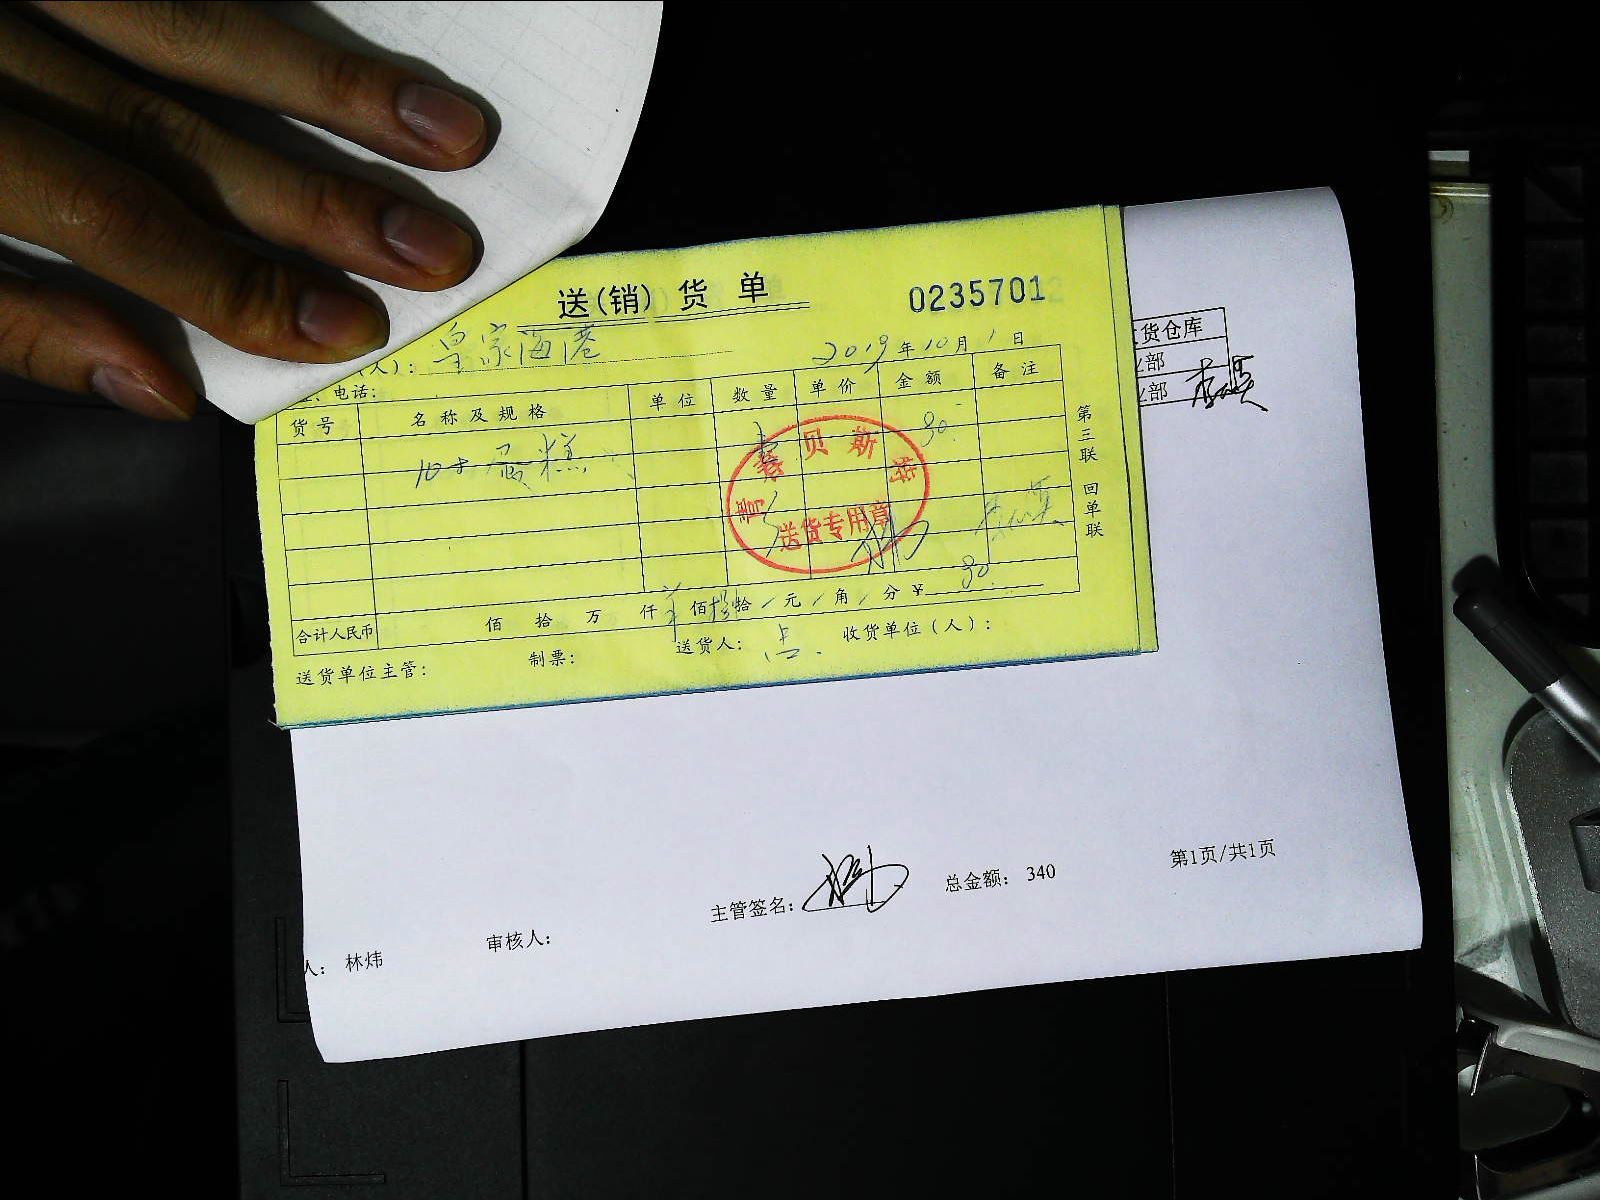 送(销)货单
02357012
人）：皇家海港
2019年10月1日
电话：
货号 名称及规格 单位 数量 单价 金额 备注
10寸蛋糕 90.
贝斯
送货专用章
第三联 回单联
合计人民币 佰 拾 万 仟 佰 拾 / 元 / 角 / 分 ¥ 90.
送货单位主管： 制票： 送货人： 收货单位（人）：
货仓库
部
部
人： 林炜 审核人： 主管签名： 总金额： 340 第1页/共1页